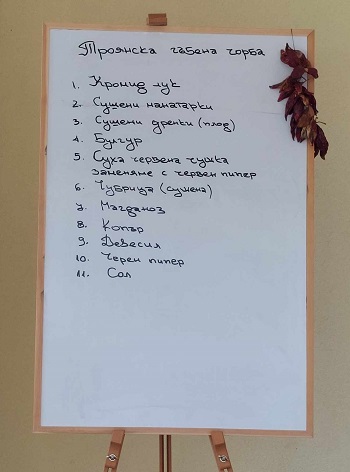 Троянска гъбена чорба
1. Кромид лук
2. Сушени манатарки
3. Сушени дренки (плод)
4. Булгур
5. Суха червена чушка
заменяне с червен пипер
6. Чубрица (сушена)
7. Магданоз
8. Копър
9. Девесил
10. Черен пипер
11. Сол